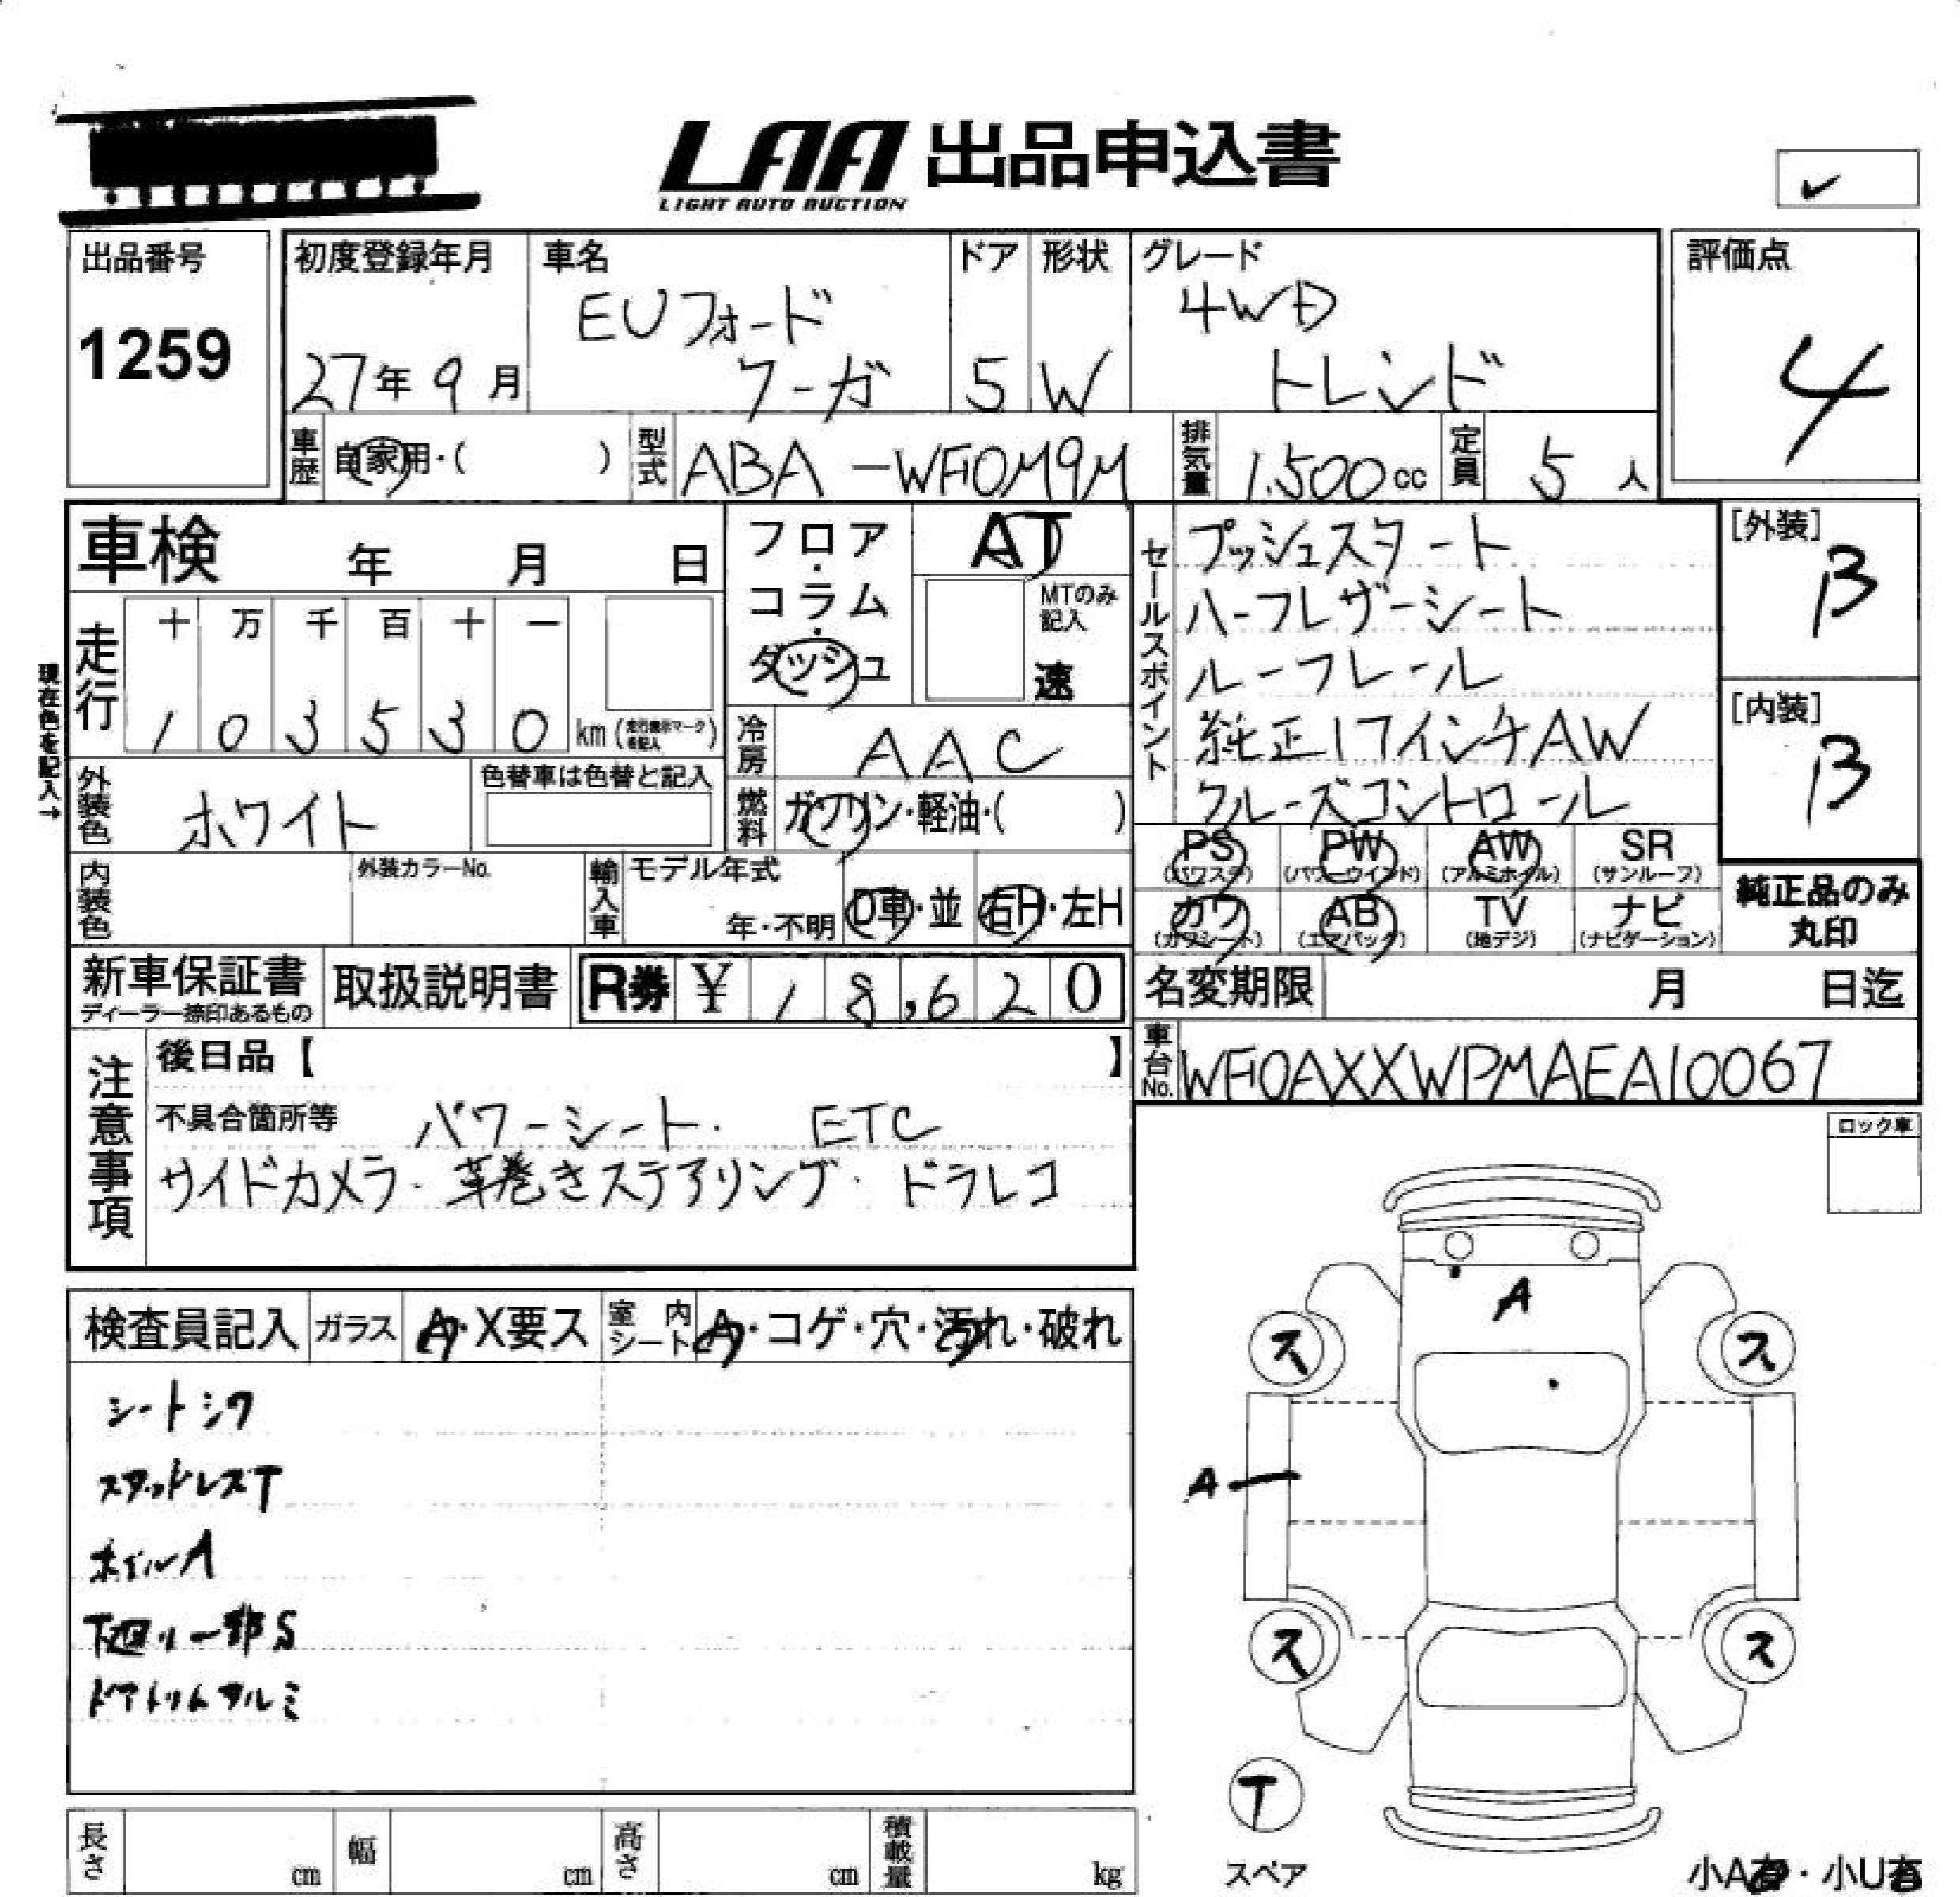 LAA 出品申込書
LIGHT AUTO AUCTION
✓
出品番号
1259
初度登録年月
27年 9月
車名
EUフォード
クーガ
ドア
5
形状
W
グレード
4WD
トレンド
評価点
4
車歴 自家用・( )
型式 ABA-WF0M9M
排気量 1.500cc
定員 5人
車検 年 月 日
フロア・コラム・ダッシュ
AT
MTのみ記入
速
セールスポイント
プッシュスタート
ハーフレザーシート
ルーフレール
純正17インチAW
クルーズコントロール
[外装]
B
[内装]
B
現在色を記入→
走行
十 万 千 百 十 一
1 0 3 5 3 0 km (走行表示マーク を記入)
冷房 AAC
外装色 ホワイト
色替車は色替と記入
燃料 ガソリン・軽油・( )
PS (パワステ)
PW (パワーウインド)
AW (アルミホイル)
SR (サンルーフ)
カワ (カワシート)
AB (エアバック)
TV (地デジ)
ナビ (ナビゲーション)
純正品のみ
丸印
内装色
外装カラーNo.
輸入車 モデル年式
年・不明
D車・並
右H・左H
新車保証書
ディーラー捺印あるもの
取扱説明書
R券 ¥ 1 8,6 2 0
名変期限 月 日迄
車台No. WF0AXXWPMAEA10067
注意事項
後日品【 】
不具合箇所等 パワーシート・ ETC
サイドカメラ・革巻きステアリング・ドラレコ
ロック車
検査員記入 ガラス A・X要ス 室内シート A・コゲ・穴・汚れ・破れ
シートシワ
スタッドレスT
ホイルA
下廻り一部S
ドアトリムアルミ
A
ス ス
A
ス ス
T
スペア
小A有・小U有
長さ cm 幅 cm 高さ cm 積載量 kg